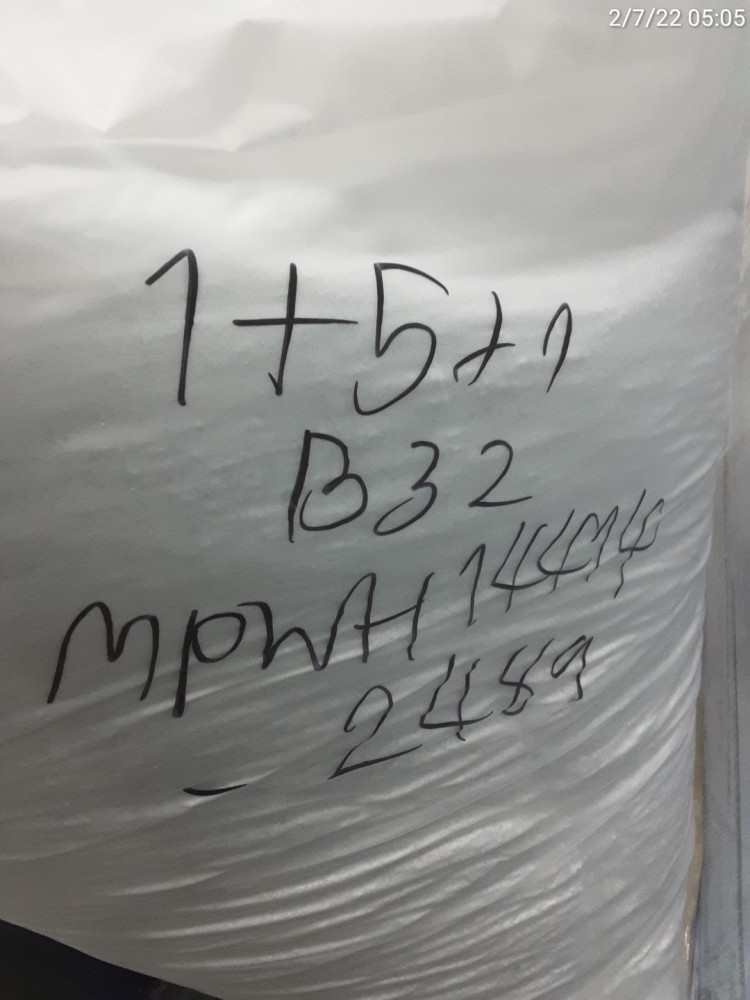 2/7/22 05:05
1+5+1
B32
MPWH 144714
- 2489